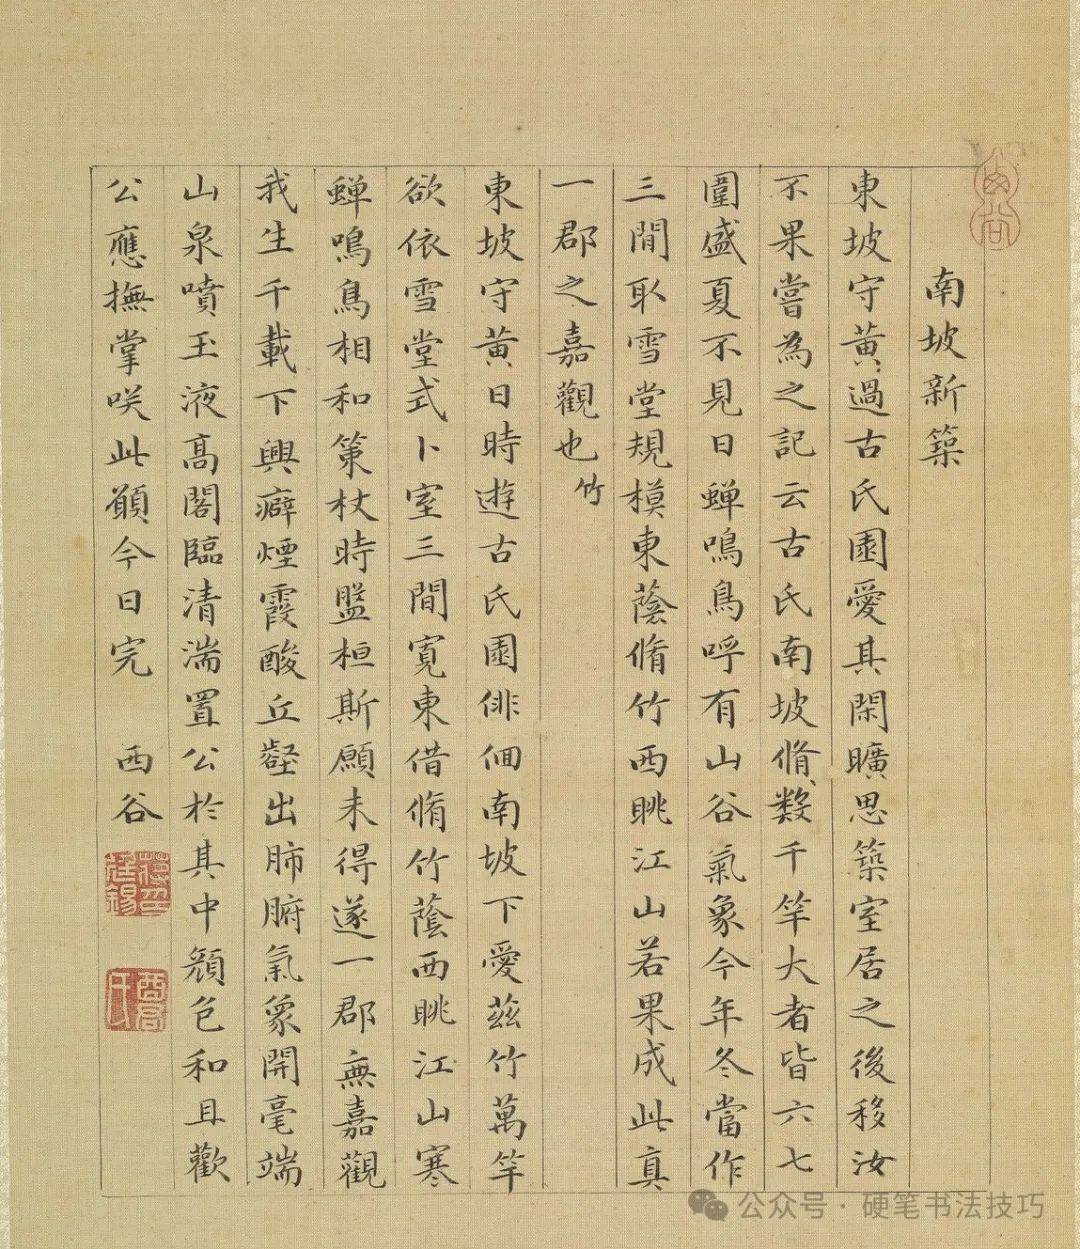 南坡新築
東坡守黃過古氏園愛其閑曠思築室居之後移汝
不果嘗為之記云古氏南坡脩數千竿大者皆六七
圍盛夏不見日蟬鳴鳥呼有山谷氣象今年冬當作
三間取雪堂規模東蔭脩竹西眺江山若果成此真
一郡之嘉觀也竹
東坡守黃日時遊古氏園俳佪南坡下愛茲竹萬竿
欲依雪堂式卜室三間寬東借脩竹蔭西眺江山寒
蟬鳴鳥相和策杖時盤桓斯願未得遂一郡無嘉觀
我生千載下興癖煙霞酸丘壑出肺腑氣象開毫端
山泉噴玉液高閣臨清湍置公於其中顏色和且歡
公應撫掌咲此願今日完 西谷
公众号·硬笔书法技巧